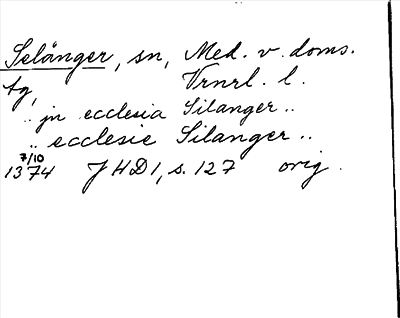 Selånger, sn, Med. v. doms.
tg, Vrnrl. l.
.. jn ecclesia Silanger ..
.. ecclesie Silanger ..
7/10
1374 JHD 1, s. 127 orig.